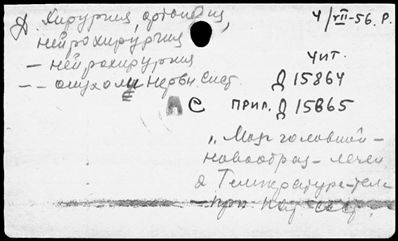 Д. Хирургия, ортопедия,
нейрохирургия
– нейрохирургия
– – опухоли нервн. сист.
4/VII-56. Р.
чит.
Д 15864
прил. Д 15865
А С
„Мозг головной –
новообраз – лечен
а Температура тела
при